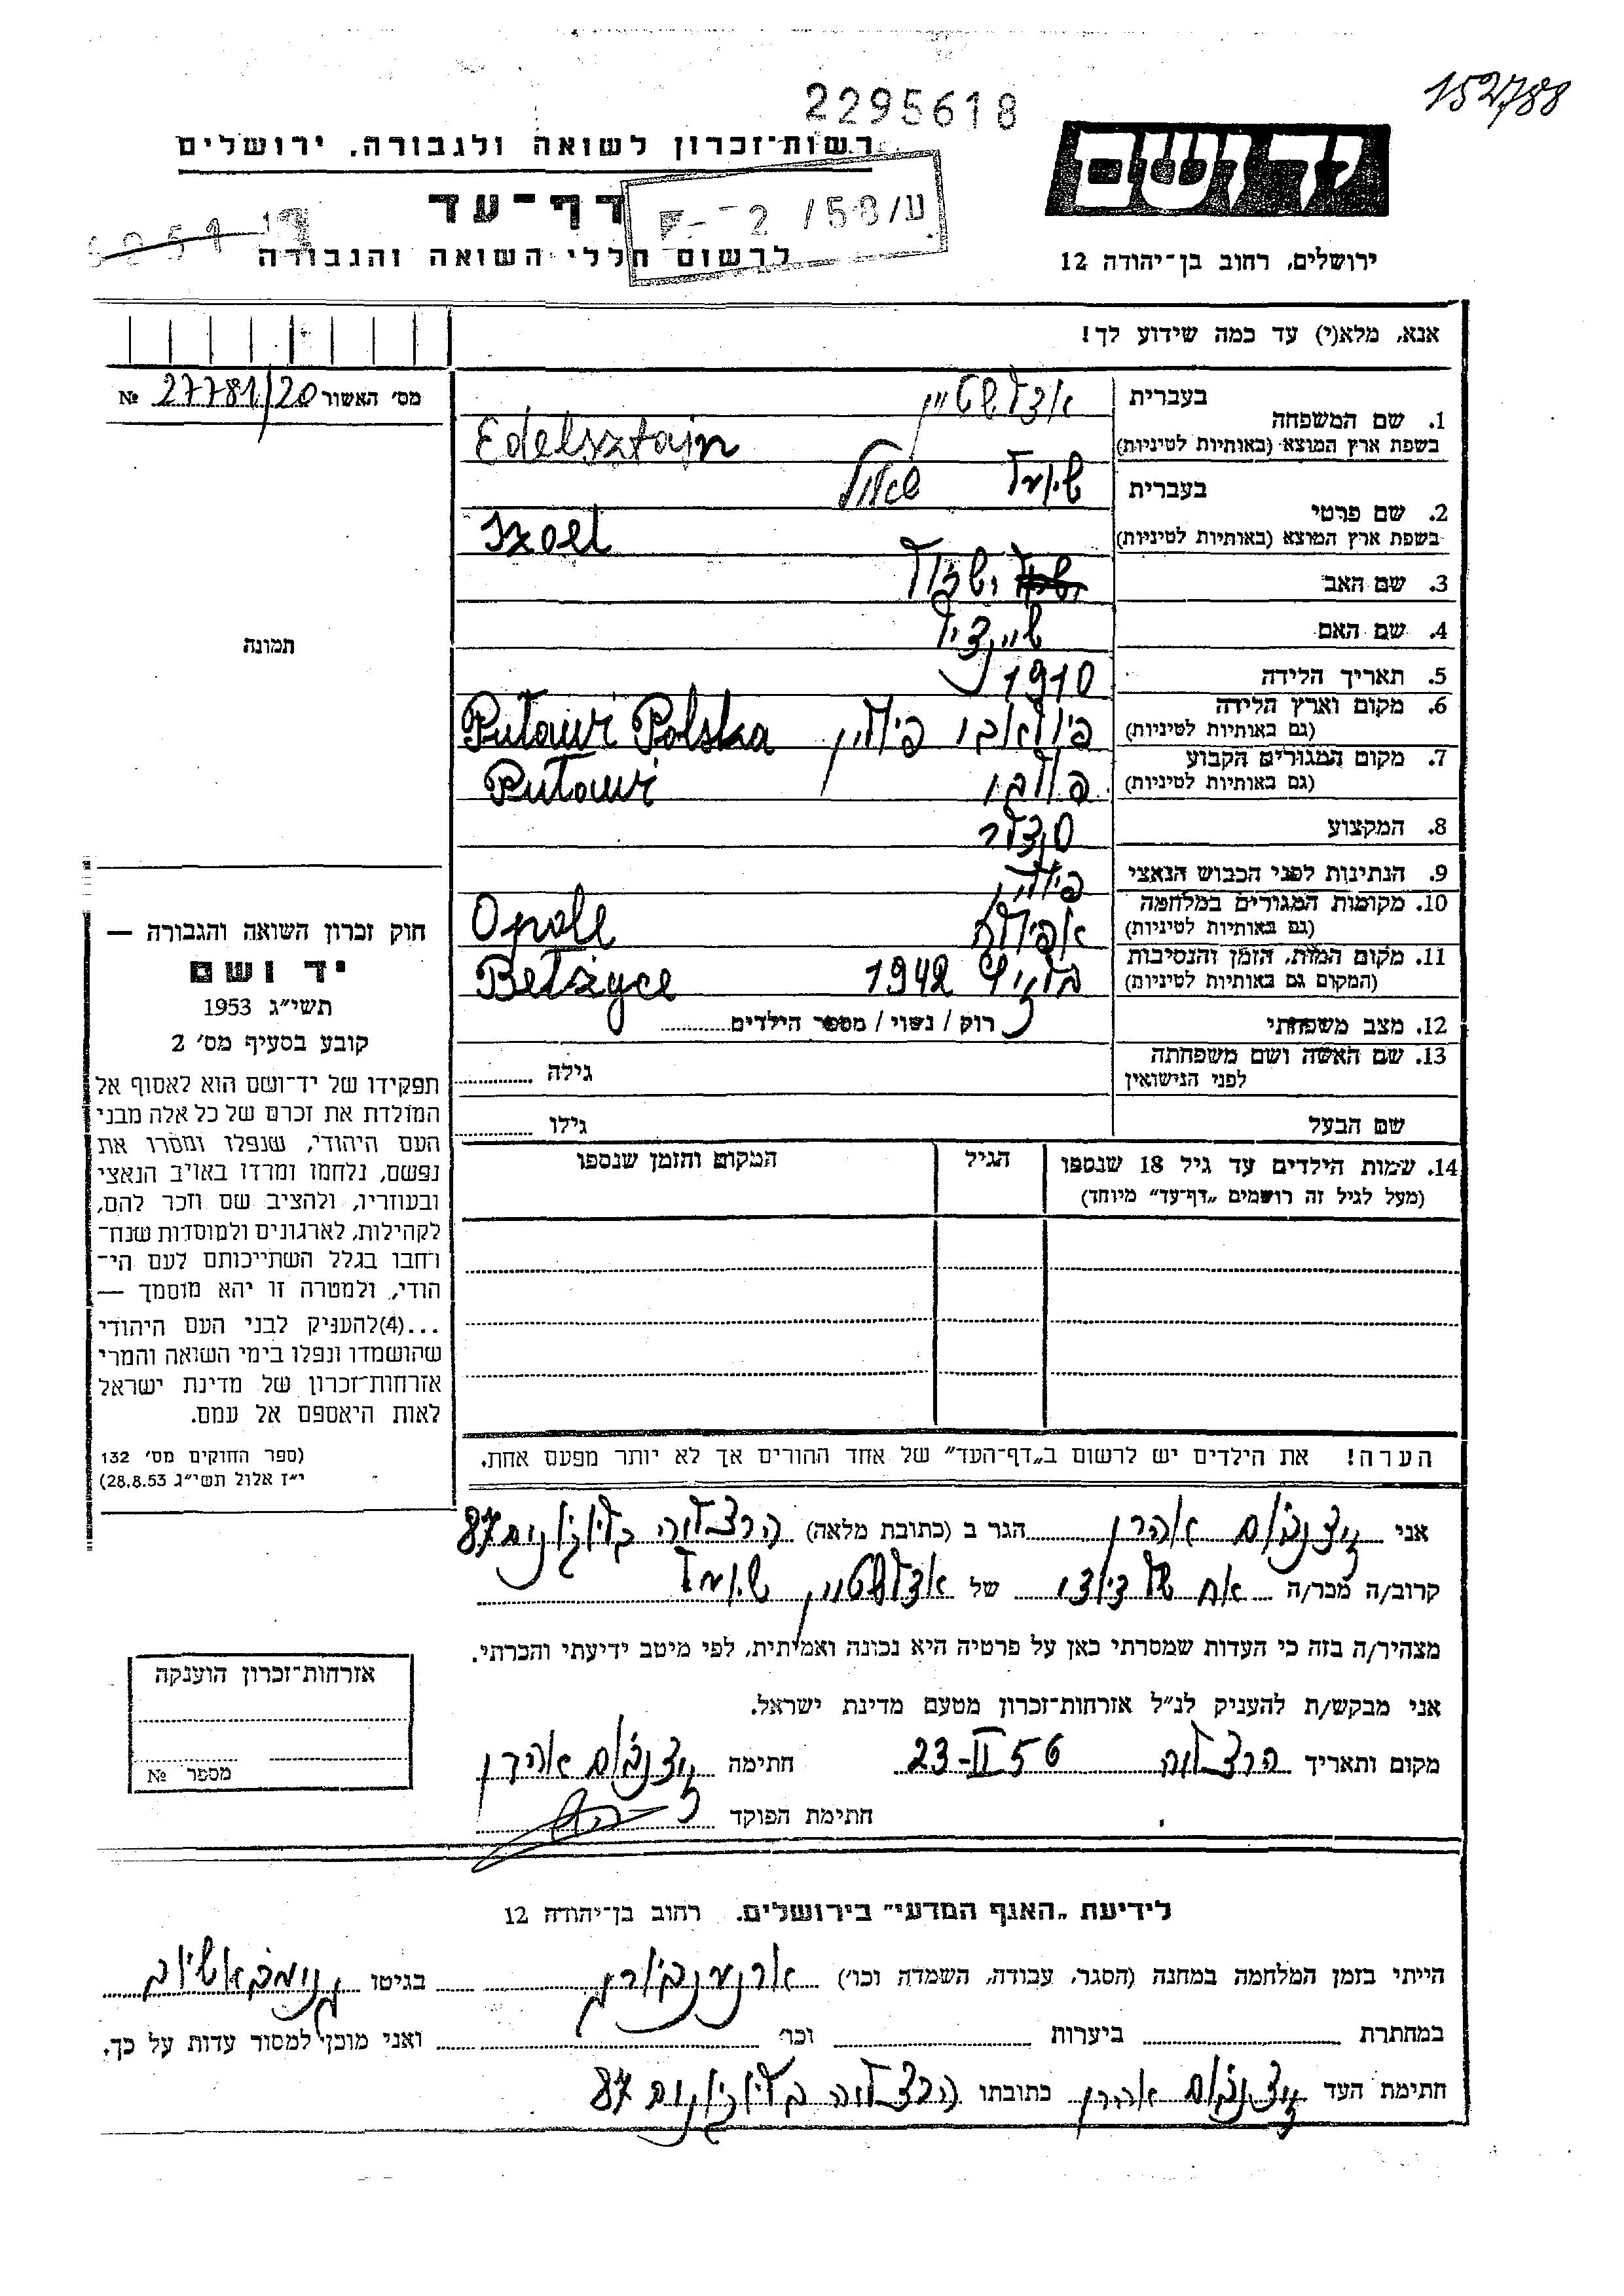 152788
2295618
רשות־זכרון לשואה ולגבורה, ירושלים
יד ושם
דף־עד
ע/58/
לרשום חללי השואה והגבורה
ירושלים, רחוב בן־יהודה 12
אנא, מלא(י) עד כמה שידוע לך!
מס׳ האשור 27781/20 №
1. שם המשפחה
בעברית אדלשטיין
בשפת ארץ המוצא (באותיות לטיניות) Edelsztajn
2. שם פרטי
בעברית שאול
בשפת ארץ המוצא (באותיות לטיניות)
3. שם האב
4. שם האם
5. תאריך הלידה 1910
6. מקום וארץ הלידה
(גם באותיות לטיניות) פולין Putawi Polska
7. מקום המגורים הקבוע
(גם באותיות לטיניות) Putawi
8. המקצוע
9. הנתינות לפני הכבוש הנאצי פולין
10. מקומות המגורים במלחמה
(גם באותיות לטיניות) Opole
11. מקום המות, הזמן והנסיבות
(המקום גם באותיות לטיניות) 1942 Betżyce
12. מצב משפחתי רוק / נשוי / מספר הילדים
13. שם האשה ושם משפחתה
לפני הנישואין
גילה
שם הבעל
גילו
14. שמות הילדים עד גיל 18 שנספו
(מעל לגיל זה רושמים „דף־עד” מיוחד)
הגיל
המקום והזמן שנספו
תמונה
חוק זכרון השואה והגבורה —
יד ושם
תשי״ג 1953
קובע בסעיף מס׳ 2
תפקידו של יד־ושם הוא לאסוף אל
המולדת את זכרם של כל אלה מבני
העם היהודי, שנפלו ומסרו את
נפשם, נלחמו ומרדו באויב הנאצי
ובעוזריו, ולהציב שם וזכר להם,
לקהילות, לארגונים ולמוסדות שנח־
רחבו בגלל השתייכותם לעם הי־
הודי, ולמטרה זו יהא מוסמך —
...(4)להעניק לבני העם היהודי
שהושמדו ונפלו בימי השואה והמרי
אזרחות־זכרון של מדינת ישראל
לאות היאספם אל עמם.
(ספר החוקים מס׳ 132
י״ז אלול תשי״ג 28.8.53)
הערה! את הילדים יש לרשום ב„דף־העד” של אחד ההורים אך לא יותר מפעם אחת.
אני אהרן הגר ב (כתובת מלאה) הרצליה 87
קרוב/ה מכר/ה של אדלשטיין
מצהיר/ה בזה כי העדות שמסרתי כאן על פרטיה היא נכונה ואמיתית, לפי מיטב ידיעתי והכרתי.
אני מבקש/ת להעניק לנ״ל אזרחות־זכרון מטעם מדינת ישראל.
מקום ותאריך הרצליה 23-II 56 חתימה אהרן
חתימת הפוקד
אזרחות־זכרון הוענקה
מספר №
לידיעת „האגף המדעי” בירושלים. רחוב בן־יהודה 12
הייתי בזמן המלחמה במחנה (הסגר, עבודה, השמדה וכו׳) בגיטו
במחתרת ביערות וכו׳ ואני מוכן למסור עדות על כך.
חתימת העד אהרן כתובתו הרצליה 87